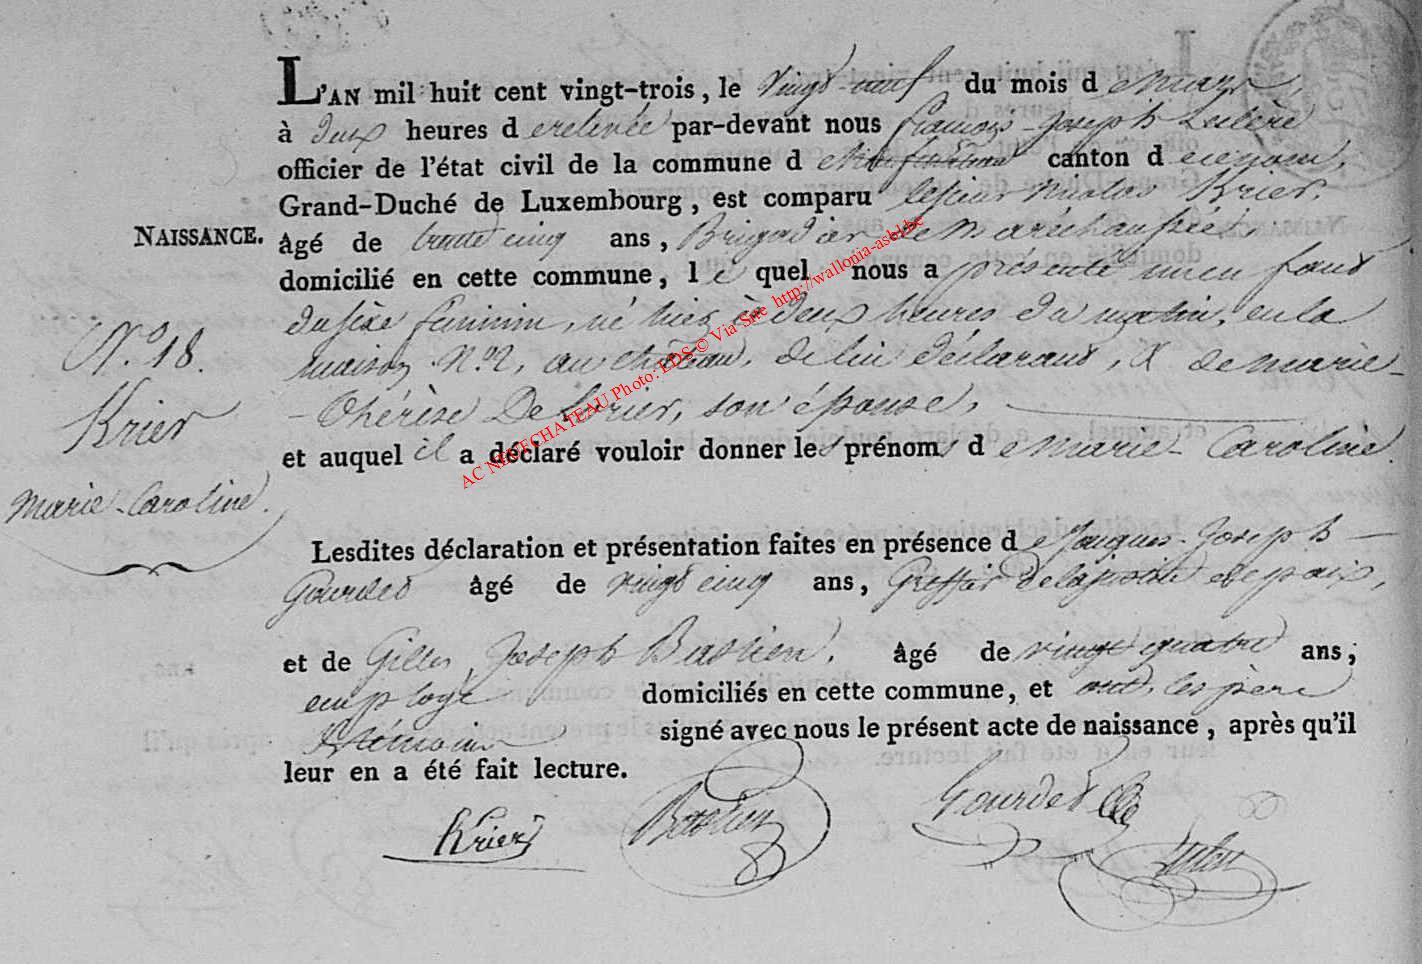 L'AN mil huit cent vingt-trois, le vingt-neuf du mois d e mars,
à deux heures d e relevée par-devant nous françois-Joseph
officier de l'état civil de la commune d e Neufchâteau canton d e ce nom,
Grand-Duché de Luxembourg, est comparu le sieur nicolas Krier,
NAISSANCE.
âgé de trente cinq ans, Brigadier de Maréchaussée,
domicilié en cette commune, l e quel nous a présenté un enfant
du sexe féminin, né hier à deux heures du matin, en la
N.º 18.
maison N.º 2, au château, de lui déclarant, & de marie-
Krier
-Thérèse, son épouse,
et auquel il a déclaré vouloir donner les prénoms d e marie-Caroline.
Marie-Caroline.
Lesdites déclaration et présentation faites en présence d e Jacques-Joseph-
Gourdet âgé de vingt cinq ans, Greffier de la justice de paix,
et de Gilles Joseph Bastien, âgé de vingt quatre ans;
employé domiciliés en cette commune, et ont, les père
& témoins signé avec nous le présent acte de naissance, après qu'il
leur en a été fait lecture.
Krier Bastien Gourdet
AC NEUFCHATEAU Photo: EDS © Via Site http://wallonia-asbl.be